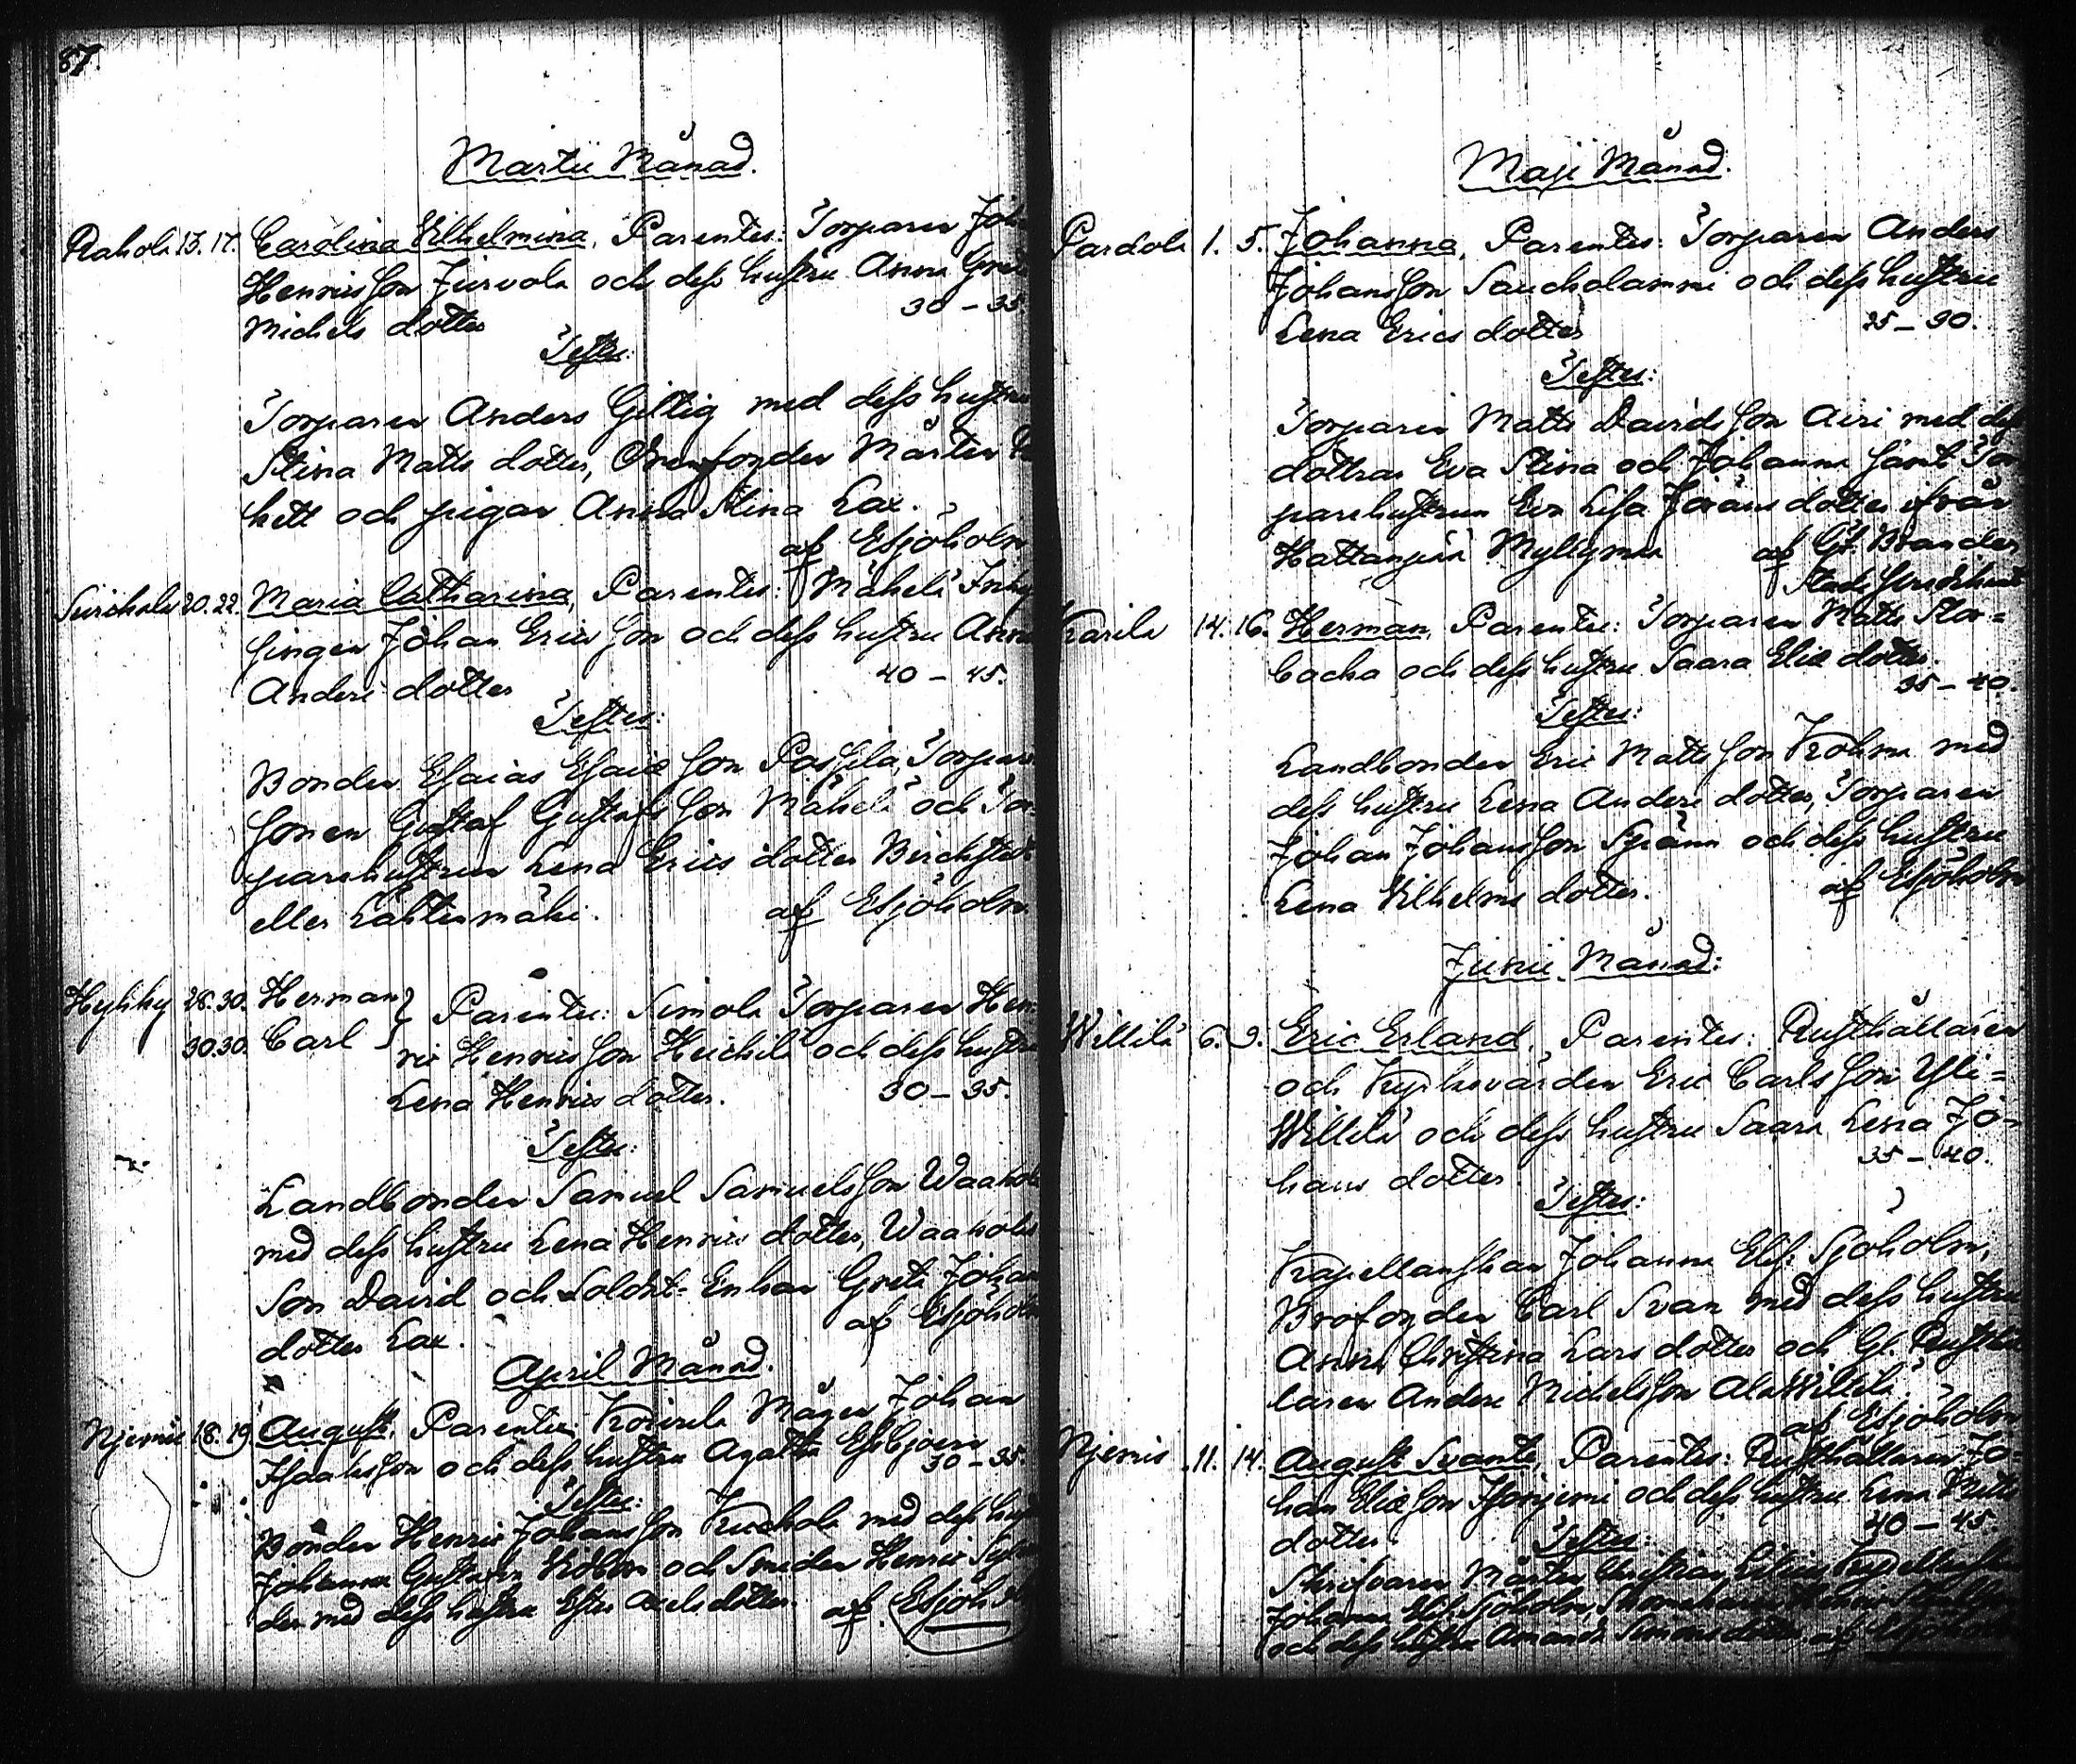 87.
Martii Månad.
Rahola 13. 17. Carolina Vilhelmina, Parentes: Torparen Joh
Henricsson Juvola och dess hustru Anna Gre
Michels dotter 30 – 35.
Testes:
Torparen Anders Gillig med dess hustru
Stina Matts dotter, Mårten
kett och pigan Anna Stina Lax.
af Esjöholm
20. 22. Maria Catharina, Parentes: Mäkelä
singen Johan Ericsson och dess hustru Anna
Anders dotter 40 – 45.
Testes:
Bonden Esaias Esaiæ son Passila, Torpare
sonen Gustaf Gustafsson Mäkelä och Tor-
parehustrun Lena Erics dotter
eller Lähtenmäki. af Esjöholm
Hyhky 28. 30. Herman
30. 30. Carl
Parentes: Simola Torparen Hen-
ric Henricsson Heickilä och dess hustru
Lena Henrics dotter. 30 – 35.
Testes:
Landbonden Samuel Samuelsson Waahola
med dess hustru Lena Henrics dotter, Waahola
Son David och Soldat-Enkan Greta Johans
dotter Lax. af Esjöholm
April Månad.
Njemis 18. 19. August, Parentes: Mågen Johan
Isaaksson och dess hustru Agatha
30 – 35.
Testes:
Bonden Henric Johansson med dess hust
Johanna Gustafva och Smeden Henric
den med dess hustru Ester dotter. af Esjöh
Maji Månad.
Pardola 1. 5. Johanna, Parentes: Torparen Anders
Johansson Saucholammi och dess hustru
Lena Erics dotter 25 – 30.
Testes:
Torparen Matts Davidsson Airi med dess
dottrar Eva Stina och Johanna samt Tor-
parehustrun Eva Lisa Jöransdotter ifrån
Hattanpää Myllymaa af Gl. Brander
Karila 14. 16. Herman, Parentes: Torparen Matts Stor-
backa och dess hustru Saara Eliæ dotter.
35 – 40.
Testes:
Landbonden Eric Mattsson Krohna med
dess hustru Lena Anders dotter, Torparen
Johan Johansson Spänn och dess hustru
Lena Vilhelms dotter. af Esjöholm
Junii Månad:
Willilä 6. 9. Eric Erland, Parentes: Rusthållaren
och Kyrkovärden Eric Carlsson Yli-
Willilä och dess hustru Saara Lena Jo-
hans dotter. 35 – 40.
Testes:
Kapellanskan Johanna Elis: Sjöholm,
Brofogden Carl Svan med dess hustru
Anna Christina Lars dotter och Gl. Rusthål
laren Anders Michelsson AlaWillilä.
af Esjöholm
Njemis 11. 14. August Svante, Parentes: Rusthållaren Jo-
han Eliæson Isonjemi och dess hustru Lena Matts
dotter. 40 – 45.
Testes:
Skrifvaren Mårten Christian
Johanna Elis: Sjöholm,
och dess hustru Amanda Simons dotter. af Esjöholm